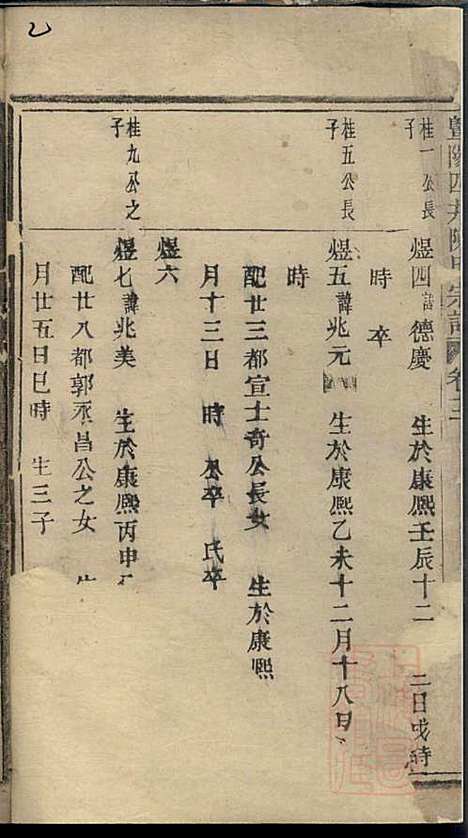 暨陽四井陳氏宗譜 卷三
桂一公長子
煜四諱德慶 生於康熙壬辰十二 二日戌時
時 卒
桂五公長子
煜五諱兆元 生於康熙乙未十二月十八日
時
配廿三都宣士奇公長女 生於康熙
月十三日 時 公卒 氏卒
煜六
桂九公之子
煜七諱兆美 生於康熙丙申
配廿八都郭丞昌公之女
月廿五日巳時 生三子